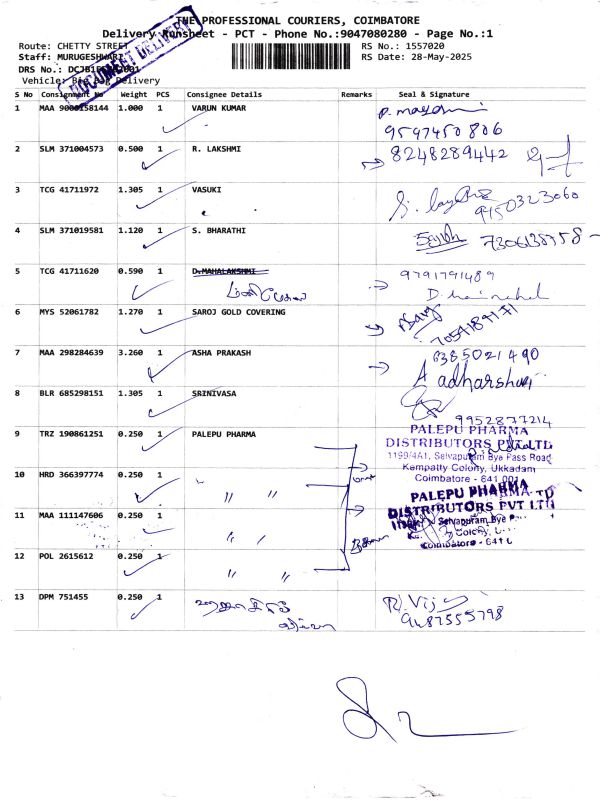 THE PROFESSIONAL COURIERS, COIMBATORE
Delivery Runsheet - PCT - Phone No.:9047080280 - Page No.:1
Route: CHETTY STREET
RS No.: 1557020
Staff: MURUGESHWARI
RS Date: 28-May-2025
DRS No.:
Vehicle: Delivery
DOCUMENT DELIVERY
S No Consignment No Weight PCS Consignee Details Remarks Seal & Signature
1 MAA 1.000 1 VARUN KUMAR
9597450806
2 SLM 371004573 0.500 1 R. LAKSHMI 8248289442
3 TCG 41711972 1.305 1 VASUKI
9450323060
4 SLM 371019581 1.120 1 S. BHARATHI
5 TCG 41711620 0.590 1 D.MAHALAKSHMI 9791791489
6 MYS 52061782 1.270 1 SAROJ GOLD COVERING
7 MAA 298284639 3.260 1 ASHA PRAKASH 6385021490
8 BLR 685298151 1.305 1 SRINIVASA
9952877214
9 TRZ 190861251 0.250 1 PALEPU PHARMA
PALEPU PHARMA
DISTRIBUTORS PVT LTD
1190/4A1, Selvapuram Bye Pass Road
Kempatty Colony, Ukkadam
Coimbatore - 641 001
10 HRD 366397774 0.250 1 " "
PALEPU PHARMA
DISTRIBUTORS PVT LTD
Selvapuram Bye
Colony,
Coimbatore - 641
11 MAA 111147606 0.250 1 " "
12 POL 2615612 0.250 1 " "
13 DPM 751455 0.250 1
9487555798